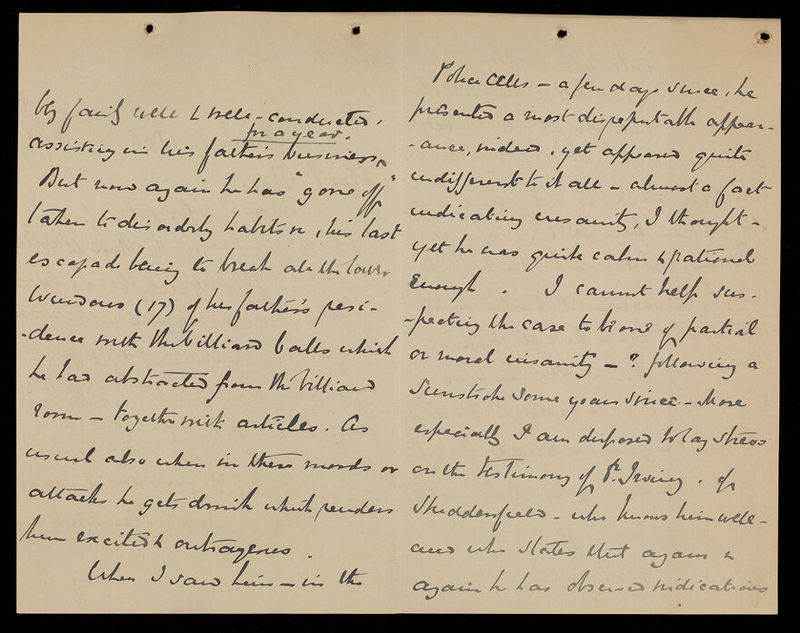 bly fairly well & well-conducted,
for a year.
assisting in his father's business
But now again he has "gone off"
taken to disorderly habits &c, his last
escapade being to break all the lower
windows (17) of his father's resi-
-dence with the billiard balls which
he had abstracted from the billiard
room - together with articles. As
usual also when in these moods or
attacks he gets drunk which renders
him excited & outrageous.
When I saw him - in the
Police Cells - a few days since, he
presented a most disreputable appear-
-ance, indeed, yet appeared quite
indifferent to it all - almost a fact
indicating insanity, I thought -
yet he was quite calm & rational
enough. I cannot help sus-
-pecting the case to be one of partial
or moral insanity - ? following a
sunstroke some years since - More
especially I am disposed to lay stress
on the testimony of Dr. Irving. of
Huddersfield - who knows him well -
and who states that again &
again he has observed indications